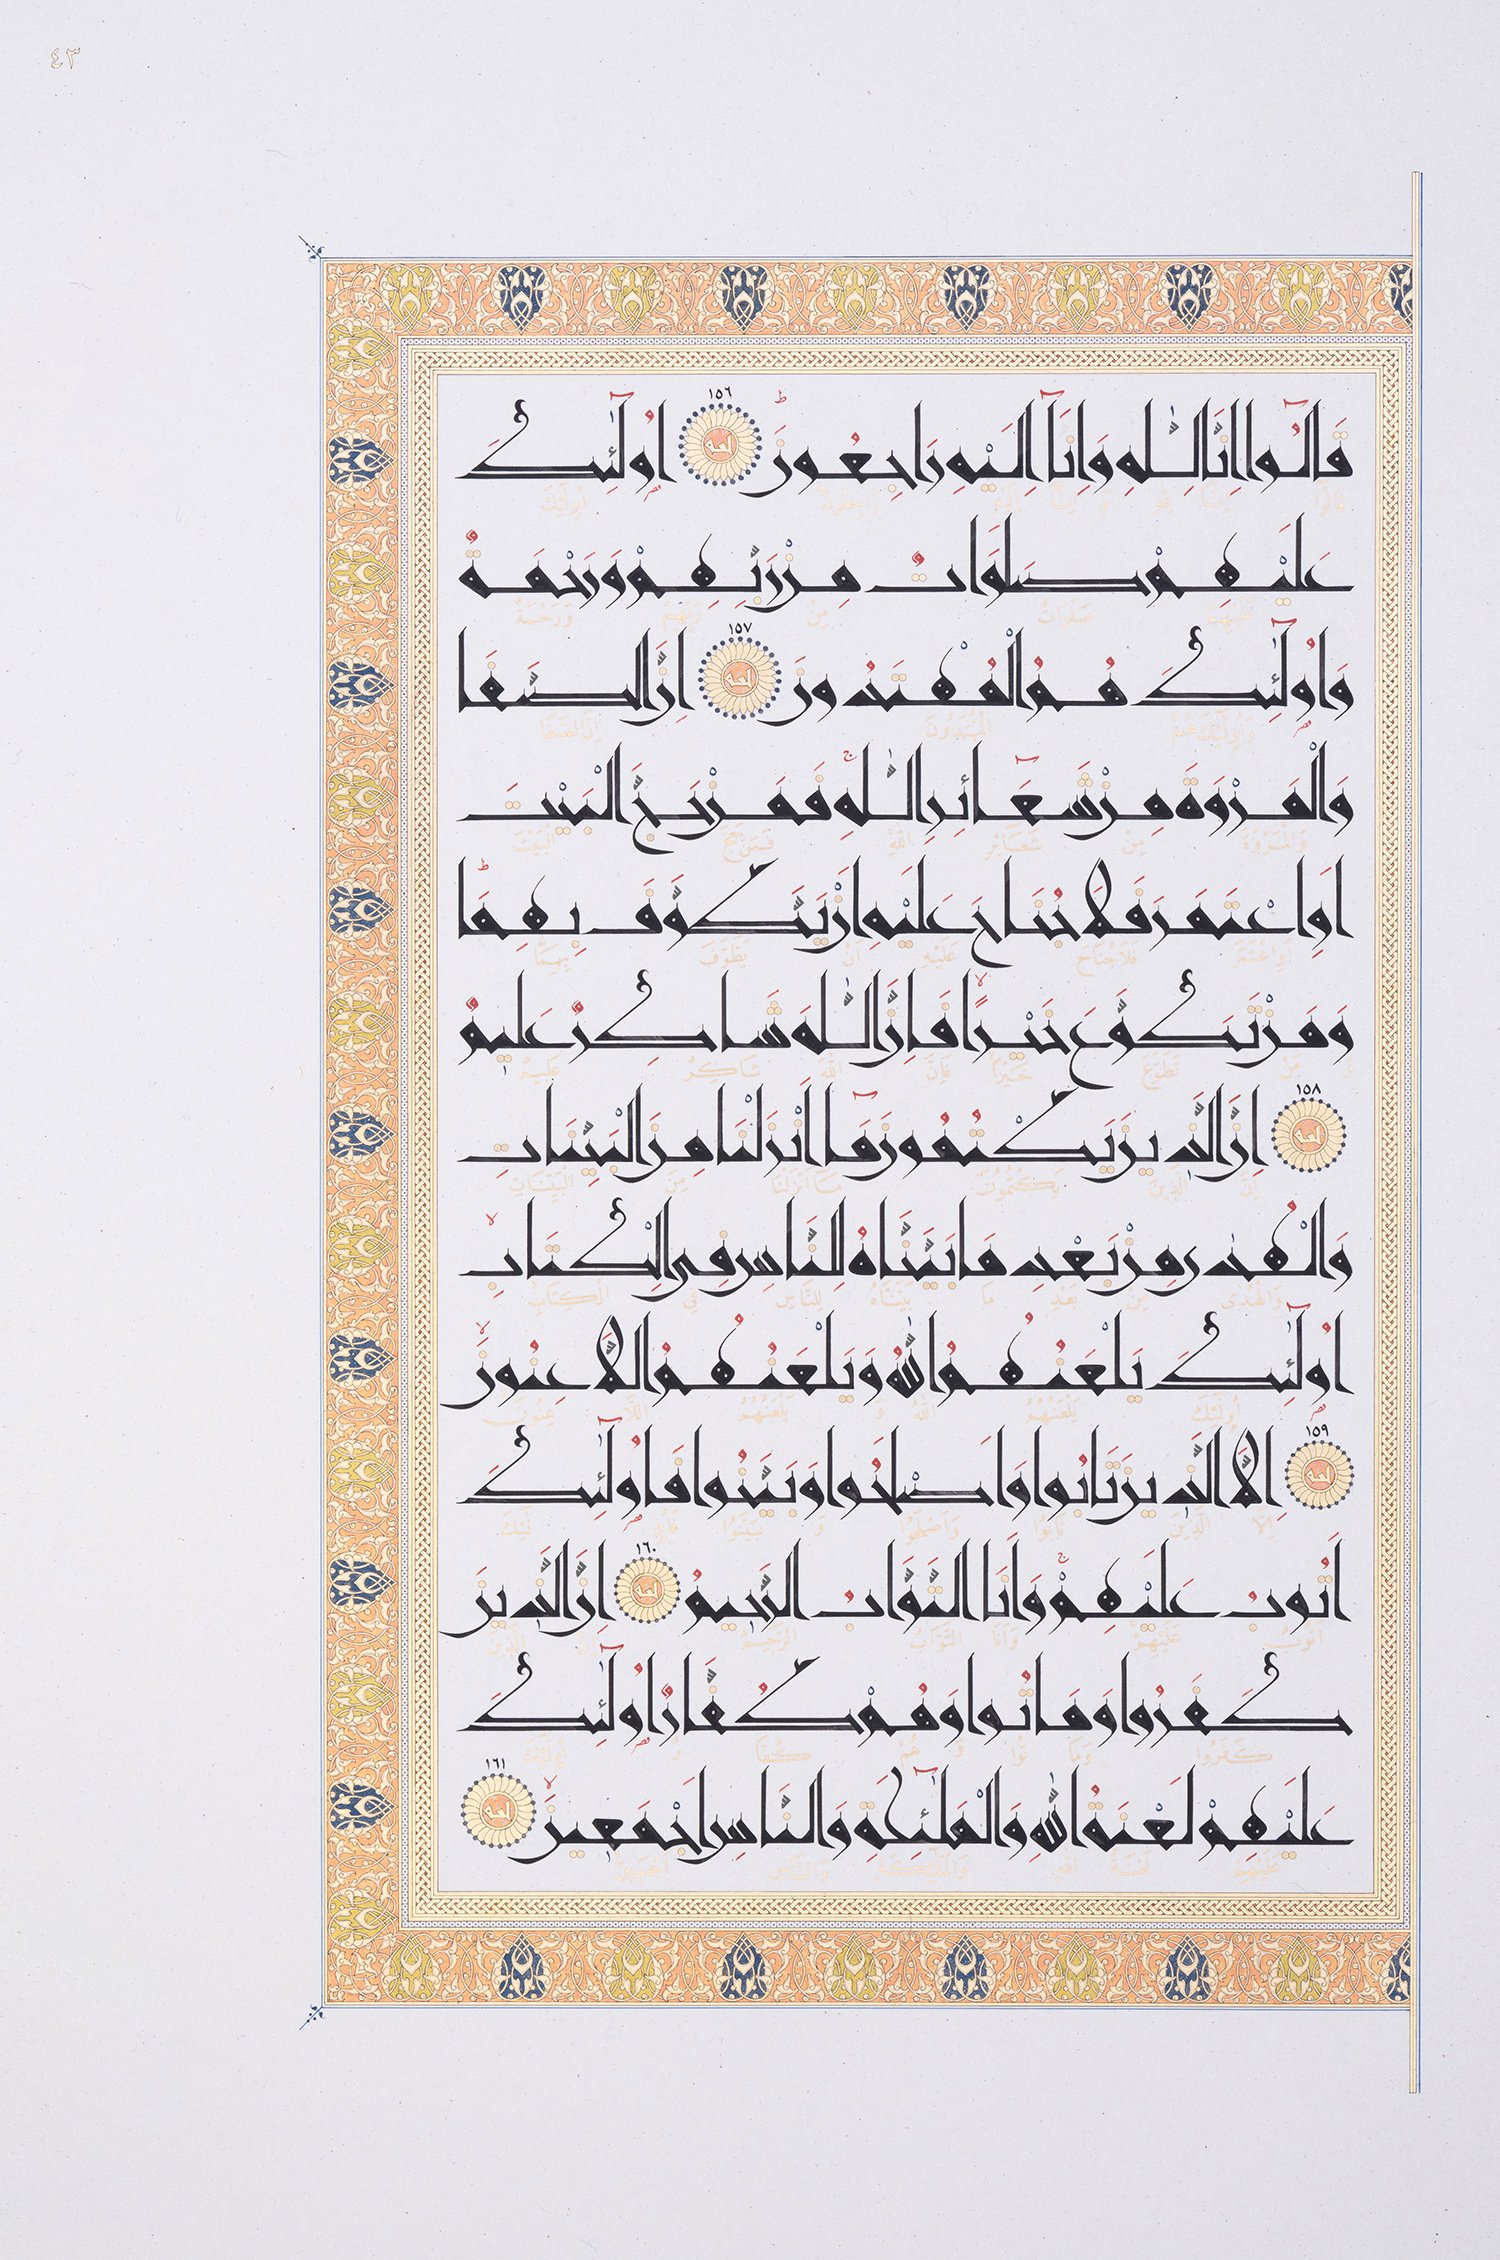 ٤٣
قَالُٓوا اِنَّا لِلّٰهِ وَاِنَّٓا اِلَيْهِ رَاجِعُونَ ١٥٦ اُولٰٓئِكَ
عَلَيْهِمْ صَلَوَاتٌ مِنْ رَبِّهِمْ وَرَحْمَةٌ
وَاُولٰٓئِكَ هُمُ الْمُهْتَدُونَ ١٥٧ اِنَّ الصَّفَا
وَالْمَرْوَةَ مِنْ شَعَٓائِرِ اللّٰهِ فَمَنْ حَجَّ الْبَيْتَ
اَوِ اعْتَمَرَ فَلَا جُنَاحَ عَلَيْهِ اَنْ يَطَّوَّفَ بِهِمَا
وَمَنْ تَطَوَّعَ خَيْرًا فَاِنَّ اللّٰهَ شَاكِرٌ عَلِيمٌ
١٥٨ اِنَّ الَّذِينَ يَكْتُمُونَ مَٓا اَنْزَلْنَا مِنَ الْبَيِّنَاتِ
وَالْهُدٰى مِنْ بَعْدِ مَا بَيَّنَّاهُ لِلنَّاسِ فِي الْكِتَابِ
اُولٰٓئِكَ يَلْعَنُهُمُ اللّٰهُ وَيَلْعَنُهُمُ اللَّاعِنُونَ
١٥٩ اِلَّا الَّذِينَ تَابُوا وَاَصْلَحُوا وَبَيَّنُوا فَاُولٰٓئِكَ
اَتُوبُ عَلَيْهِمْ وَاَنَا التَّوَّابُ الرَّحِيمُ ١٦٠ اِنَّ الَّذِينَ
كَفَرُوا وَمَاتُوا وَهُمْ كُفَّارٌ اُولٰٓئِكَ
عَلَيْهِمْ لَعْنَةُ اللّٰهِ وَالْمَلٰٓئِكَةِ وَالنَّاسِ اَجْمَعِينَ ١٦١